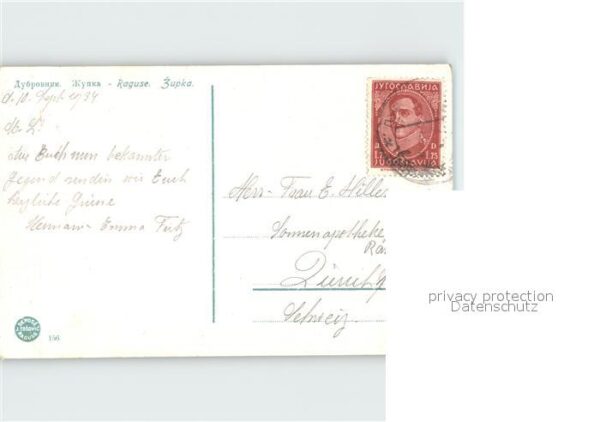 Дубровник. Жупка - Raguse. Župka.
d. 10. Sept. 1934
aus Euch nun bekannter
Gegend senden wir Euch
herzliche Grüsse
Hermann Emma Fritz
ЈУГОСЛАВИЈА
Д 1.75 D 1.75
JUGOSLAVIJA
Herr - Frau E. Hilles
Sonnenapotheke
Rä
Zürich 9
Schweiz
J. TOŠOVIĆ
156
privacy protection
Datenschutz